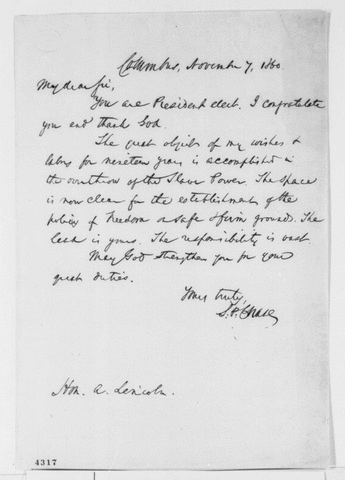 Columbus, November 7, 1860.
My dear Sir,
You are President elect. I congratulate
you and thank God.
The great object of my wishes &
labors for nineteen years is accomplished in
the overthrow of the Slave Power. The space
is now clear for the establishment of the
policy of Freedom on safe & firm grounds. The
lead is yours. The responsibility is vast.
May God strengthen you for your
great duties.
Yours truly,
S. P. Chase
Hon. A. Lincoln.
4317